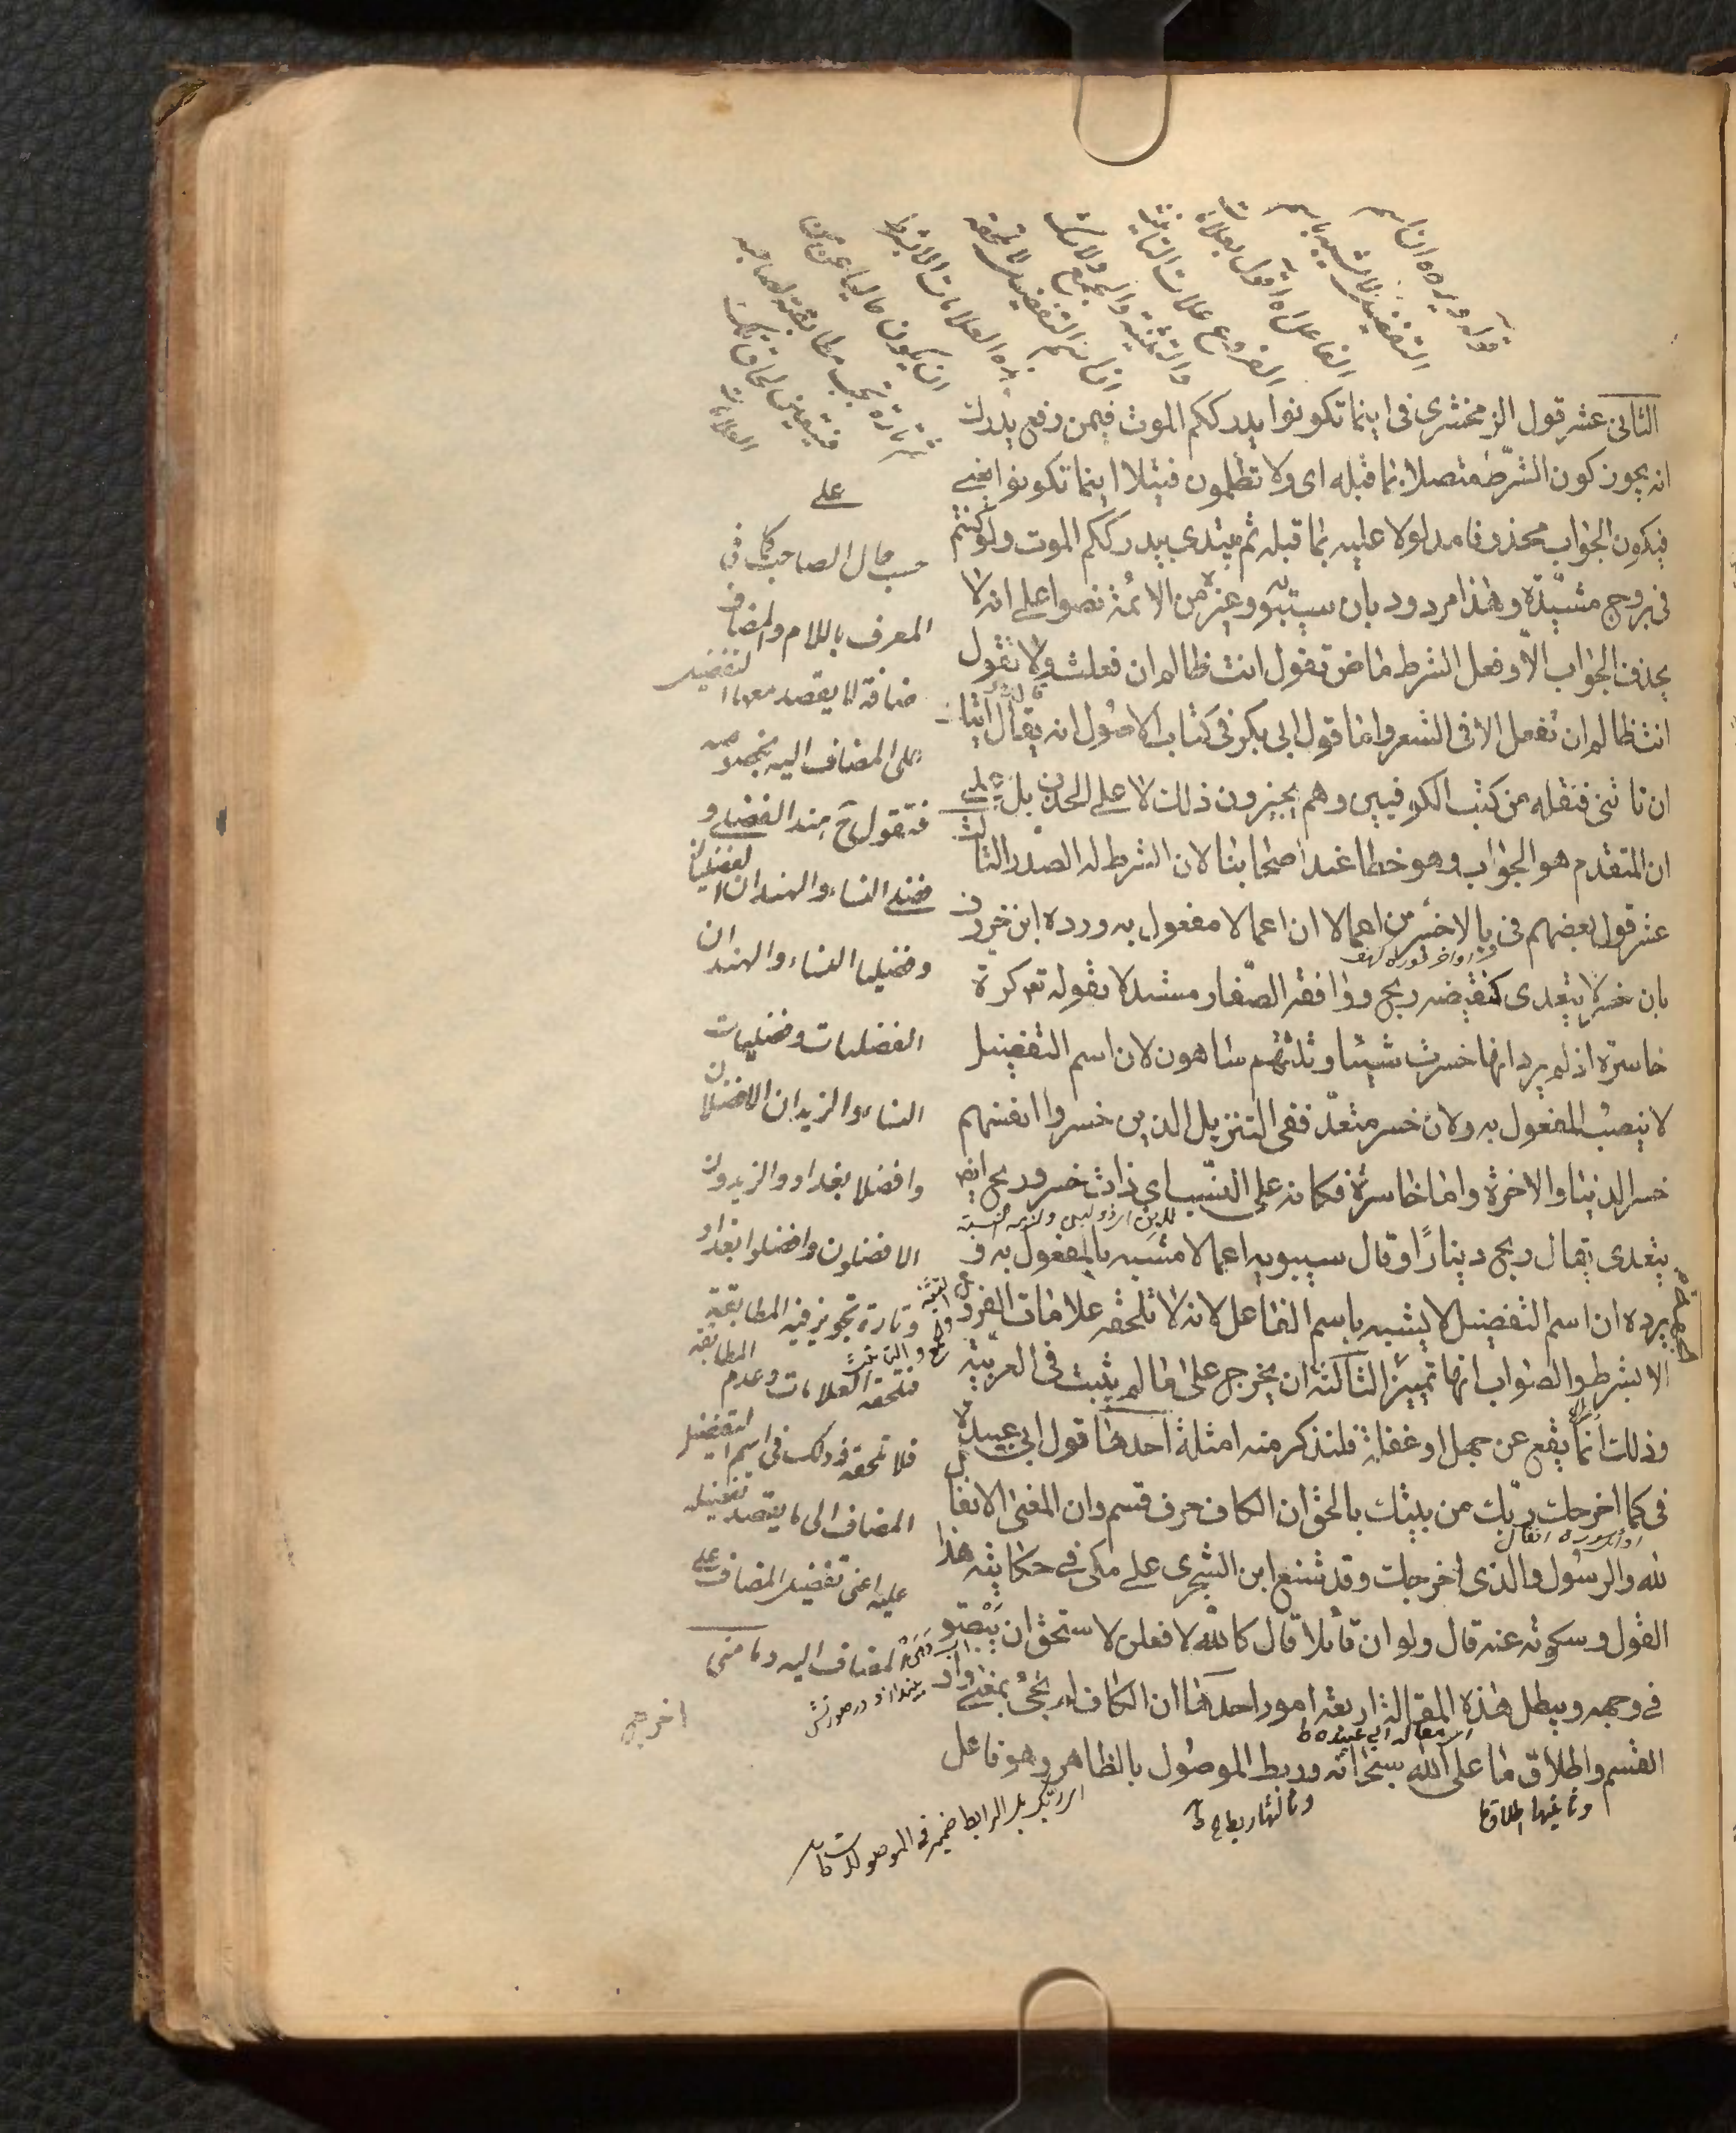 الثانى عشر قول الزمخشرى فى اينما تكونوا يدرككم الموت فيمن رفع يدرك
انه يجوز كون الشرط متصلا بما قبله اى ولا تظلمون فتيلا اينما تكونوا يعنى
فيكون الجواب محذوفا مدلولا عليه بما قبله ثم يبتدى يدرككم الموت ولو كنتم
فى بروج مشيّدة وهذا مردود بان سيبويه وغيره من الائمة نصوا على انه لا
يحذف الجواب الّا وفعل الشرط ماض تقول انت ظالم ان فعلت ولا تقول
انت ظالم ان تفعل الا فى الشعر واما قول ابى بكر فى كتاب الاصول انه يقال اتيك
ان تاتنى فنقله من كتب الكوفيين وهم يجيزون ذلك لا على الحذف بل على
ان المتقدم هو الجواب وهو خطا عند اصحابنا لان الشرط له الصدر الثالث
عشر قول بعضهم فى بالاخسرين اعمالا ان اعمالا مفعول به ورده ابن خروف
اواخر سورة كهف
بان خسر لا يتعدى كنقيضه ربح ووافقه الصفار مستدلا بقوله تعالى كرة
خاسرة اذ لم يرد انها خسرت شيئا وثلثتهم ساهون لان اسم التفضيل
لا ينصب المفعول به ولان خسر متعدّ ففى التنزيل الذين خسروا انفسهم
خسر الدنيا والاخرة واما خاسرة فكانه على النسب اى ذات خسر وربح ايضا
يتعدى يقال ربح دينارًا وقال سيبويه اعمالا مشبه بالمفعول به و
يرده ان اسم التفضيل لا يشبه باسم الفاعل لانه لا تلحقه علامات الفروع
الا بشرط والصواب انها تمييز الثالثة ان يخرج على ما لم يثبت فى العربيّة
وذلك انما يقع عن جهل او غفلة فلنذكر منه امثلة احدها قول ابى عبيدة
فى كما اخرجك ربّك من بيتك بالحق ان الكاف حرف قسم وان المعنى الانفال
اول سورة انفال
لله والرسول والذى اخرجك وقد شنع ابن الشجرى على مكى فى حكايته هذا
القول وسكوته عنه قال ولو ان قائلا قال كالله لا فعلن لاستحق ان يبصق
فى وجهه ويبطل هذه المقالة اربعة امور احدها ان الكاف لم تجئ بمعنى واو
اى مقالة ابى عبيدة ط
القسم واطلاق ما على الله سبحانه وربط الموصول بالظاهر وهو فاعل
وثانيها اطلاق ما
وثالثها ربط
اخرج
قوله ويرده ان اسم
التفضيل لا يشبه باسم
الفاعل
الفروع علامات التانيث
والتثنية والجمع
اسم التفضيل لا تلحقه
هذه العلامات الا بشرط
ان يكون خاليا عن من
فتارة تجب مطابقته لصاحبه
فيتعين لحاق تلك
العلامات
على
حسب حال الصاحب كما فى
المعرف باللام والمضاف
اضافة لا يقصد معها التفضيل
على المضاف اليه بخصوصه
فتقول هند الفضلى و
فضلى النساء والهندان الفضليان
وفضليا النساء والهندات
الفضليات وفضليات
النساء والزيدان الافضلان
وافضلا بغداد والزيدون
الافضلون وافضلوا بغداد
وتارة تجويز فيه المطابقة
فتلحقه العلامات وعدم المطابقة
فلا تلحقه وذلك فى اسم التفضيل
المضاف الى ما يقصد تفضيله
عليه اعنى تفضيل المضاف على
المضاف اليه دمامينى